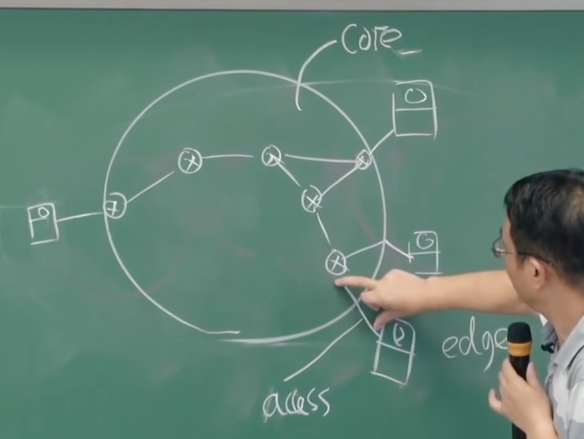 Core
edge
acess